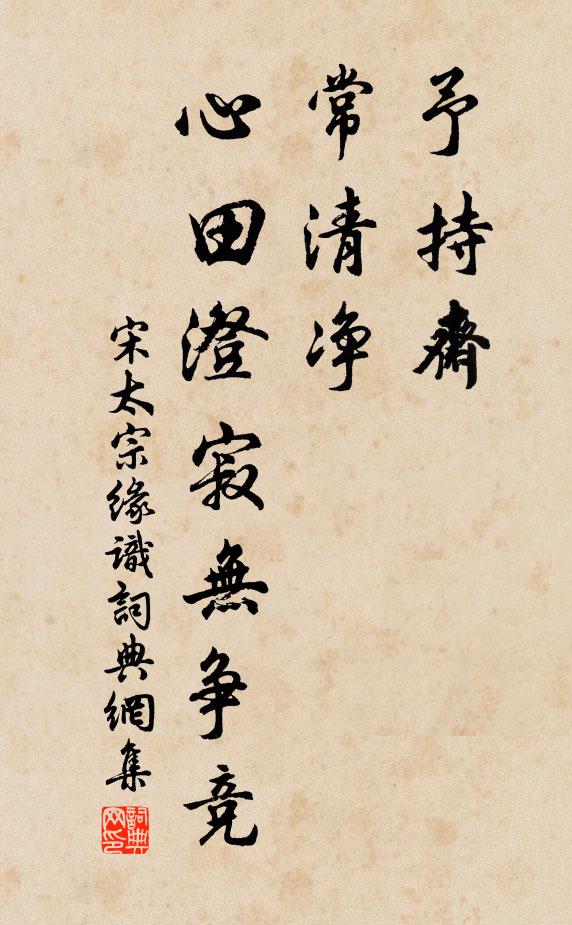 予持齋
常清净
心田澄寂無争竞
宋太宗緣識詞典網集
詞典网印